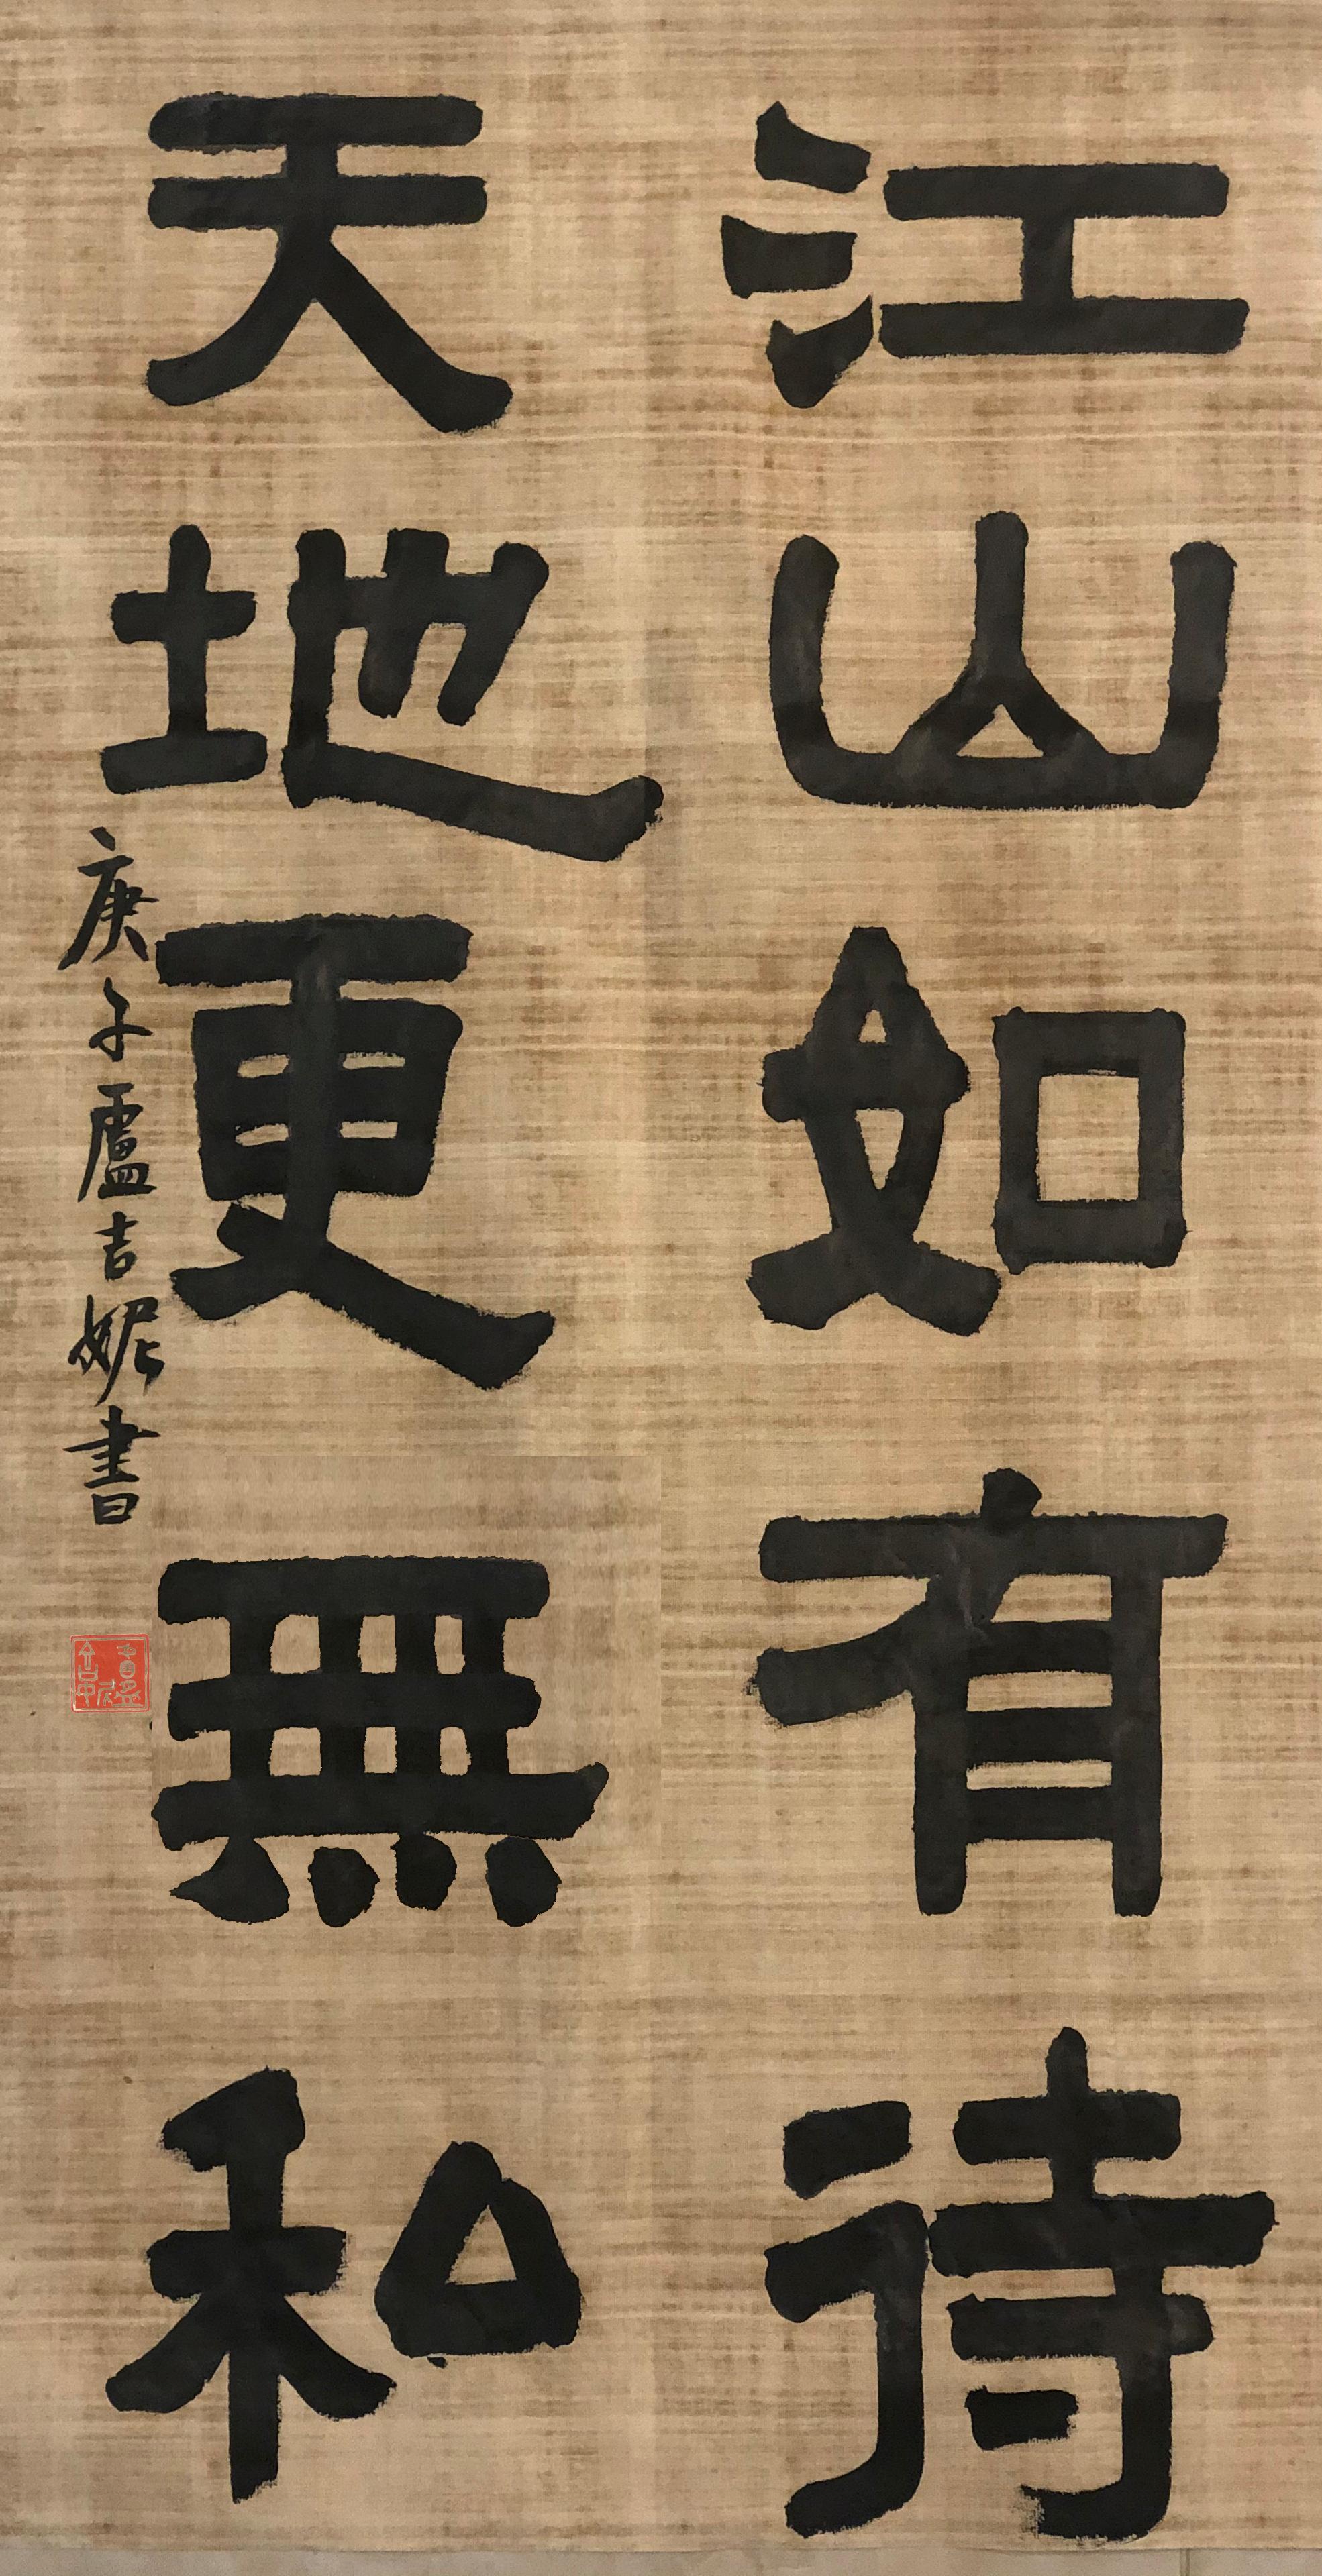 江山如有待
天地更無私
庚子盧吉妮書